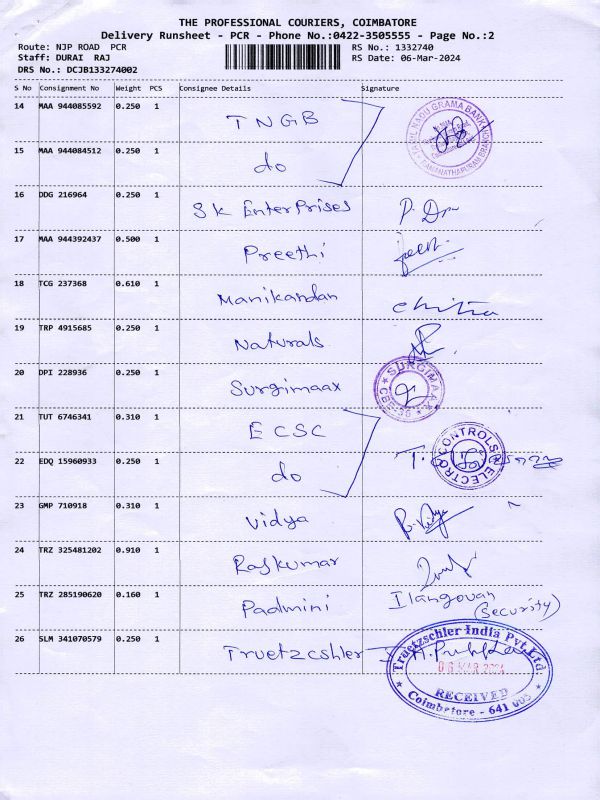 THE PROFESSIONAL COURIERS, COIMBATORE
Delivery Runsheet - PCR - Phone No.:0422-3505555 - Page No.:2
Route: NJP ROAD PCR
RS No.: 1332740
Staff: DURAI RAJ
RS Date: 06-Mar-2024
DRS No.: DCJB133274002
S No Consignment No Weight PCS Consignee Details Signature
14 MAA 944085592 0.250 1 TNGB
TAMIL NADU GRAMA BANK
RAMANATHAPURAM BRANCH
15 MAA 944084512 0.250 1 do
16 DDG 216964 0.250 1 SK Enterprises
17 MAA 944392437 0.500 1 Preethi
18 TCG 237368 0.610 1 Manikandan Chitra
19 TRP 4915685 0.250 1 Naturals
20 DPI 228936 0.250 1 Surgimaax
SURGIMAAX
21 TUT 6746341 0.310 1 ECSC
22 EDQ 15960933 0.250 1 do
CONTROLS
ELECTRO
23 GMP 710918 0.310 1 Vidya
24 TRZ 325481202 0.910 1 Rajkumar
25 TRZ 285190620 0.160 1 Padmini Ilangovan
(Security)
26 SLM 341070579 0.250 1 Truetzcshler
Truetzschler India Pvt. Ltd.
06 MAR 2024
RECEIVED
Coimbatore - 641 005